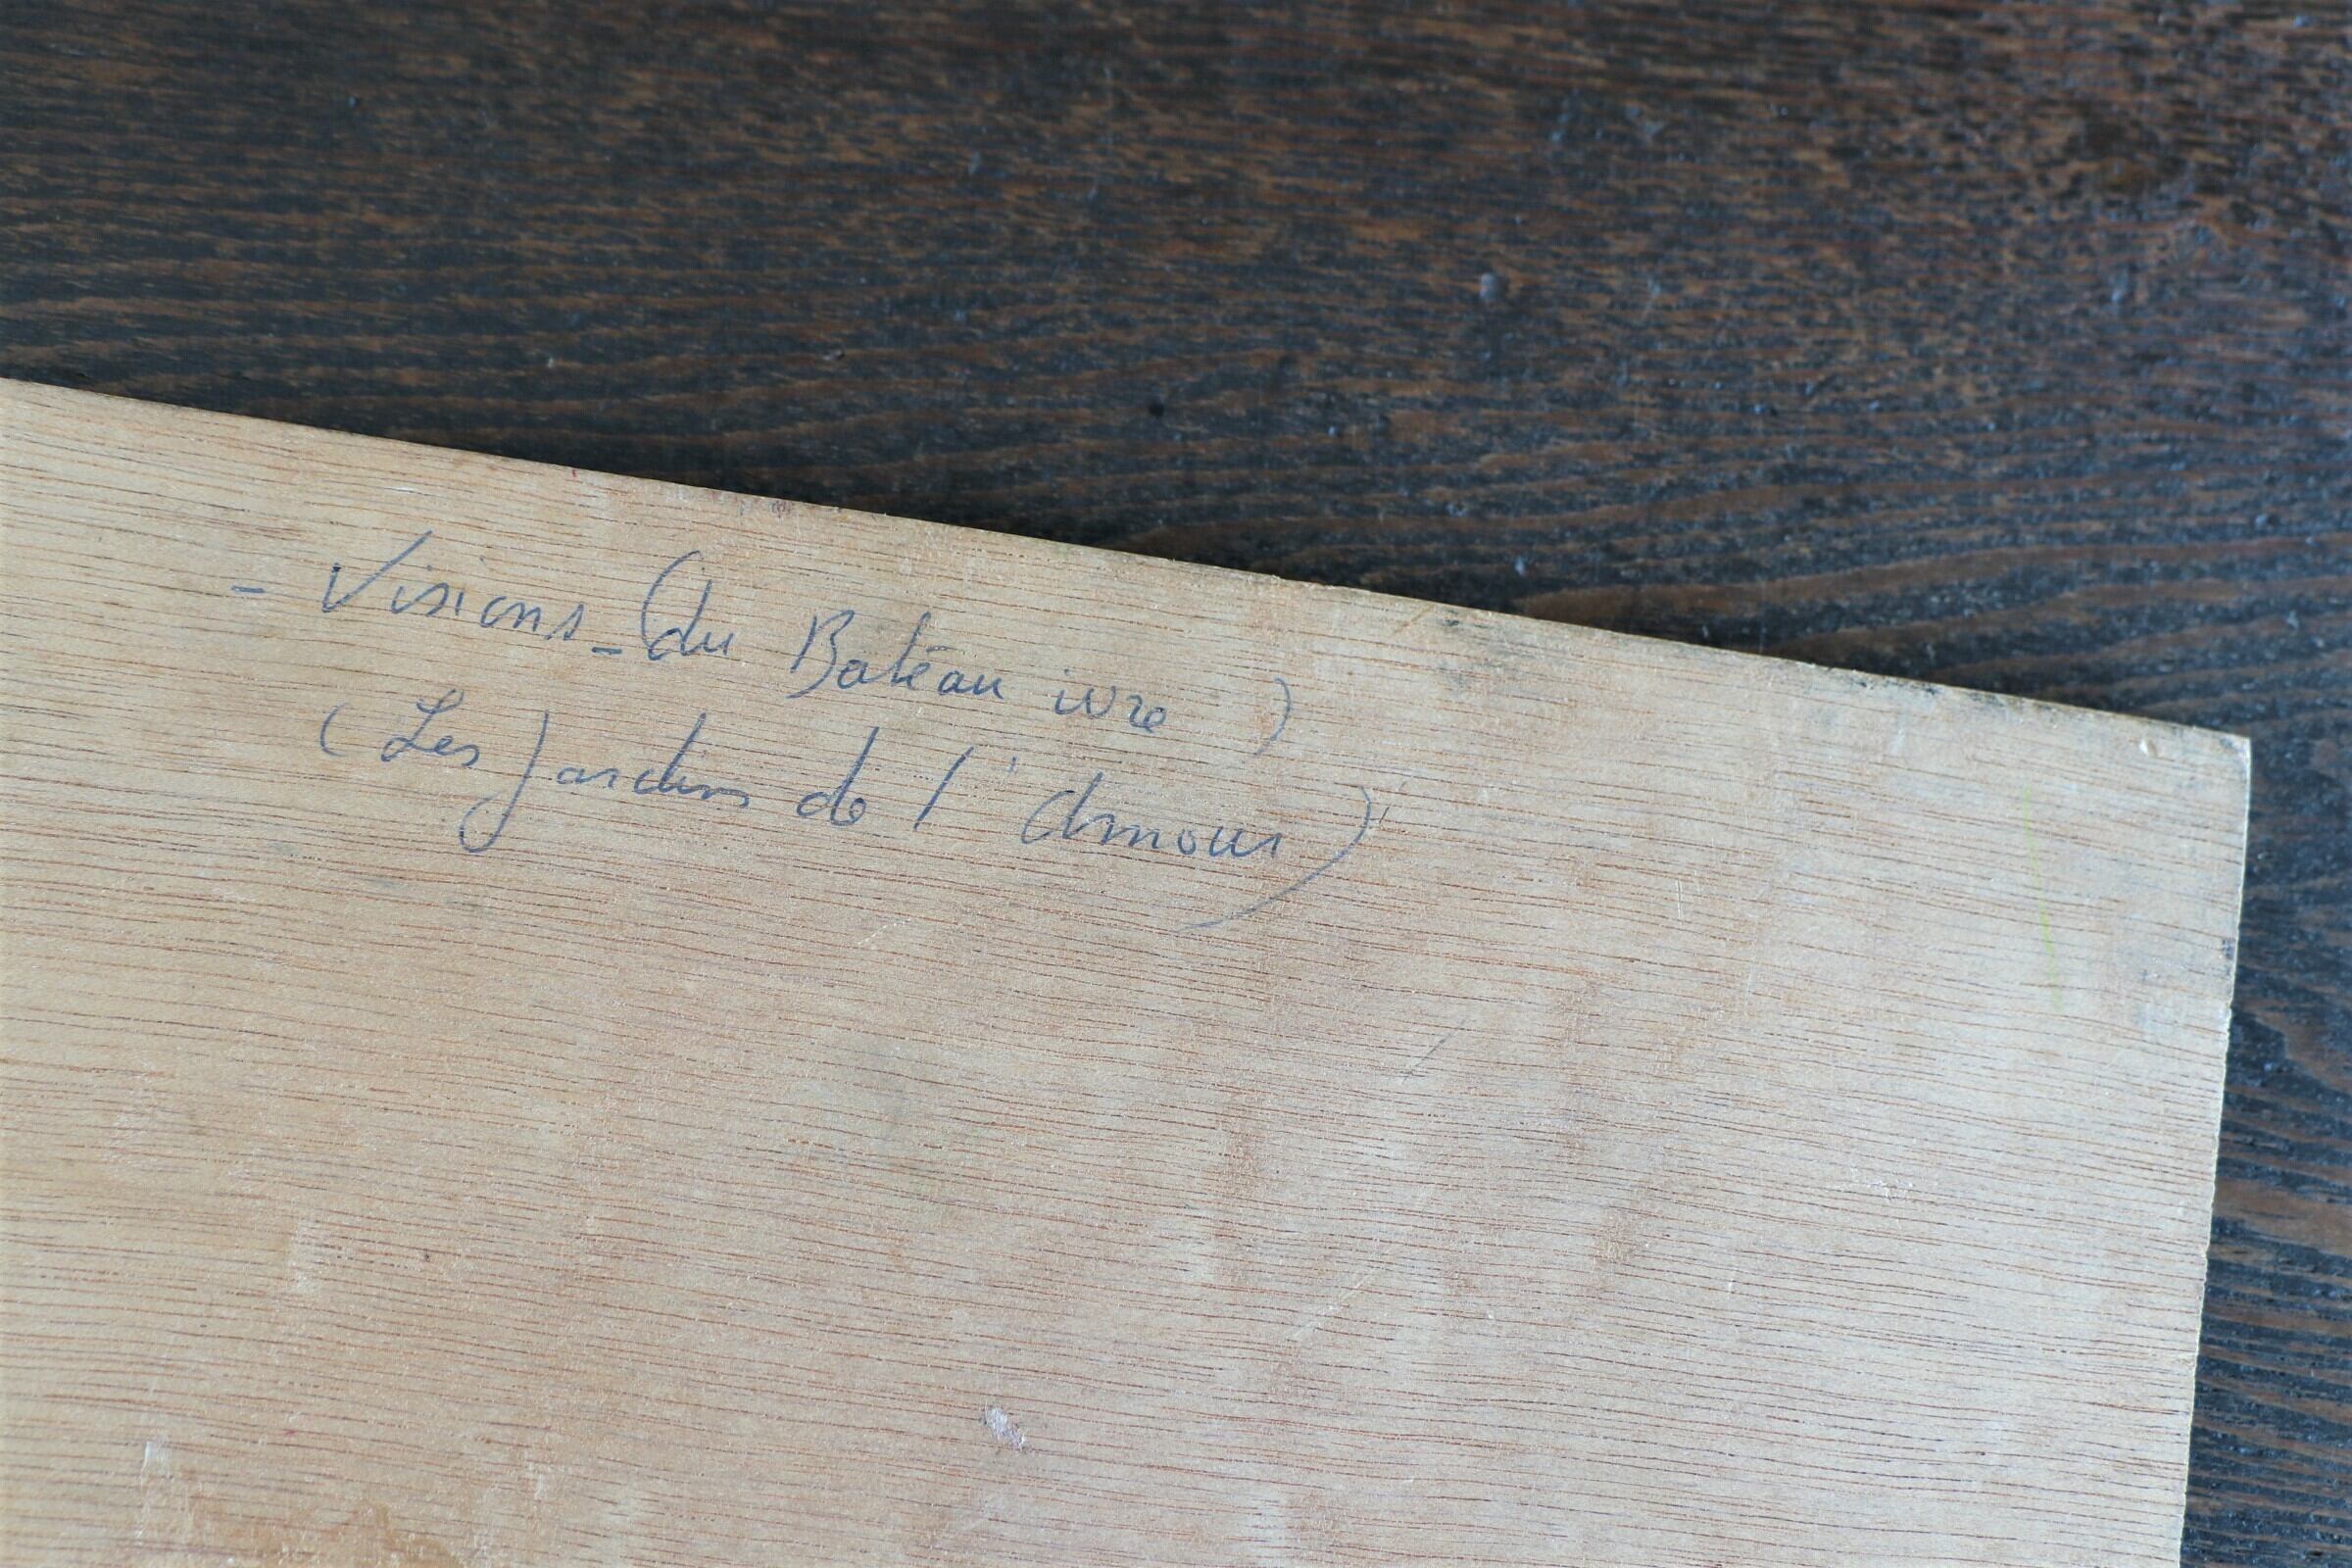 - Visions - (du Batéau ivre)
(Les Jardins de l'Amour)